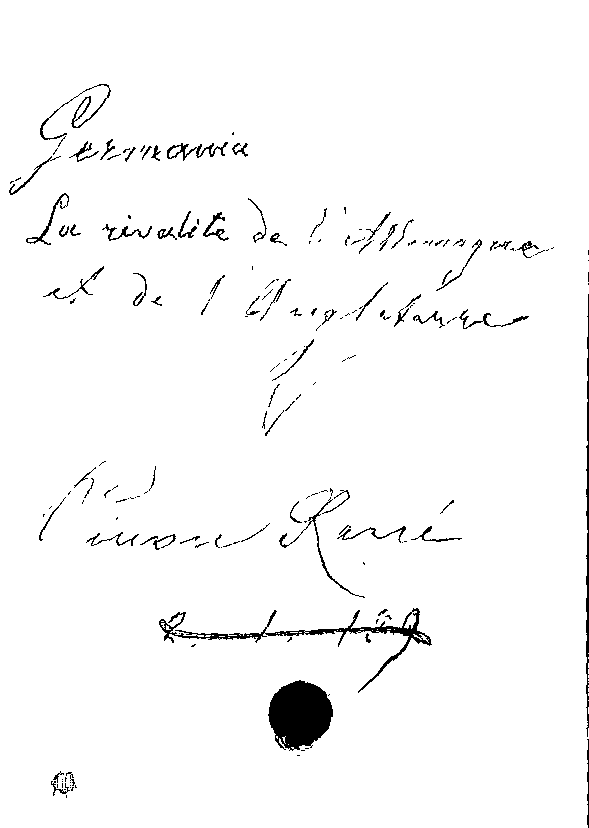 Germania
La rivalité de l'Allemagne
et de l'Angleterre
Pinon René
2. 1. 1.